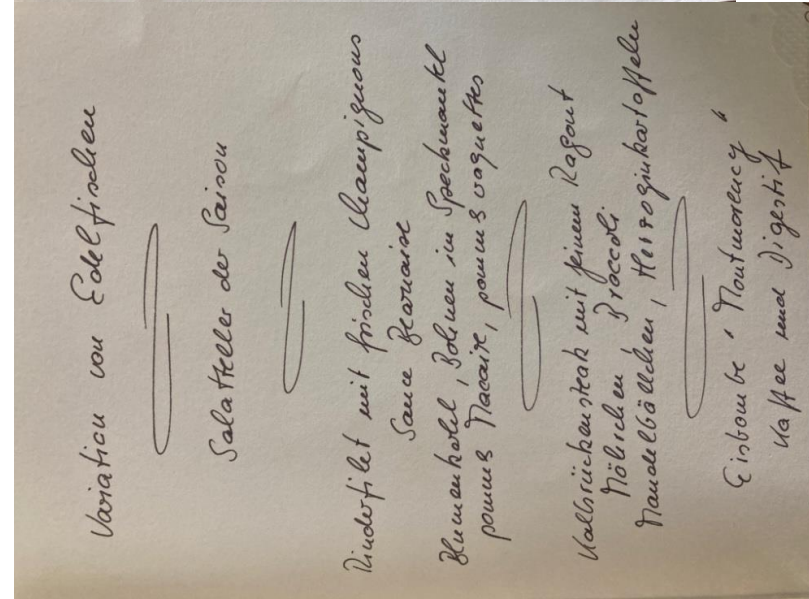 Variation von Edelfischen
Salatteller der Saison
Rinderfilet mit frischen Champignons
Sauce Bearnaise
Blumenkohl, Bohnen im Speckmantel
pommes Macaire, pommes baguettes
Kalbsrückensteak mit feinem Ragout
Möhrchen Broccoli
Mandelbällchen, Herzoginkartoffeln
Eisbombe "Montmorency"
Kaffee und Digestif